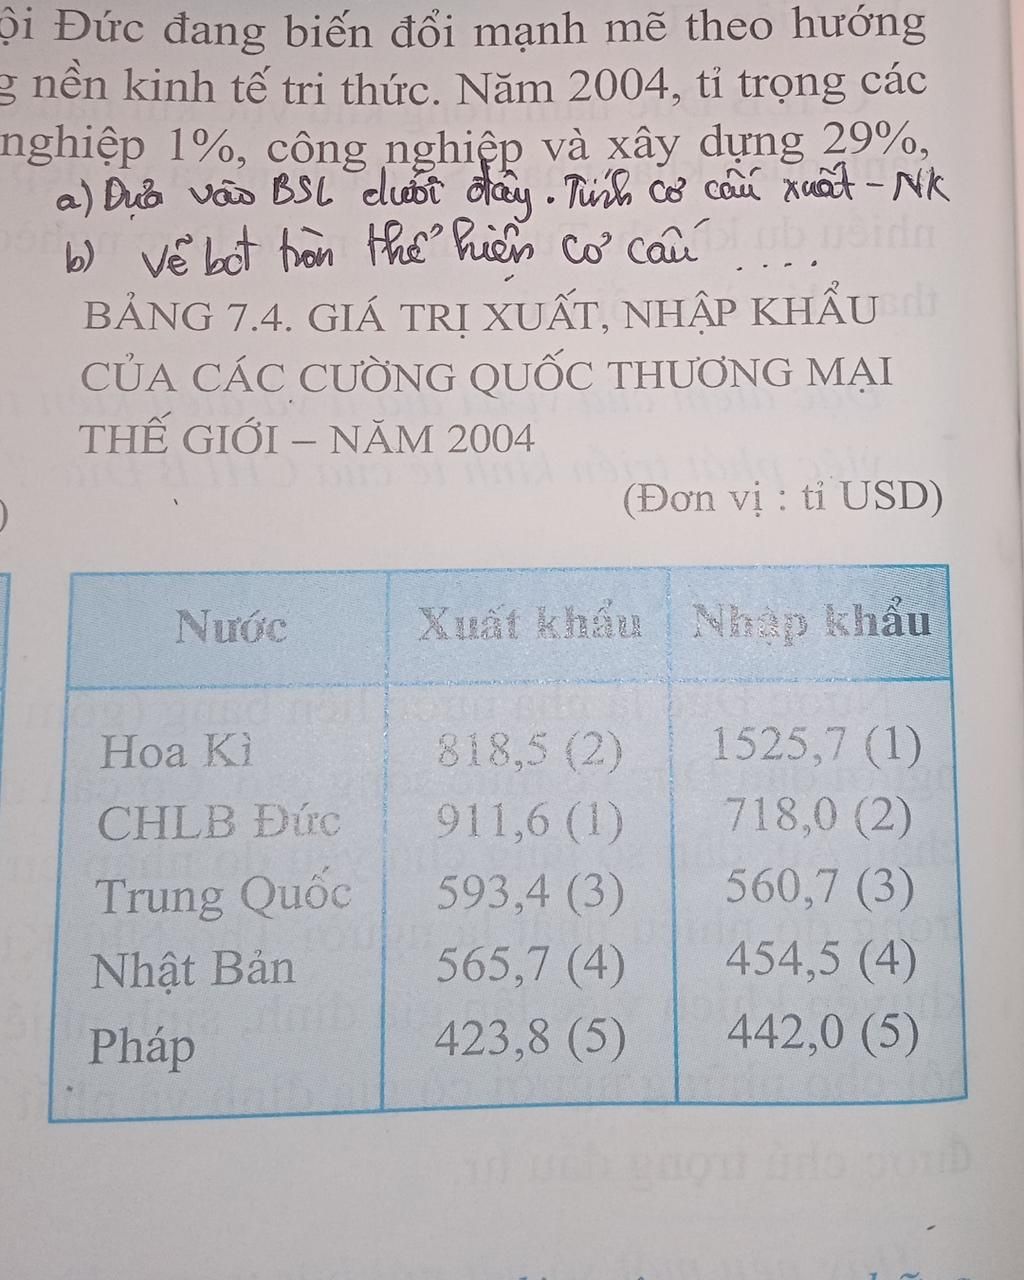 ội Đức đang biến đổi mạnh mẽ theo hướng
g nền kinh tế tri thức. Năm 2004, tỉ trọng các
nghiệp 1%, công nghiệp và xây dựng 29%,
a) Dựa vào BSL dưới đây. Tính cơ cấu xuất - NK
b) vẽ bđ tròn thể hiện cơ cấu ....
BẢNG 7.4. GIÁ TRỊ XUẤT, NHẬP KHẨU
CỦA CÁC CƯỜNG QUỐC THƯƠNG MẠI
THẾ GIỚI – NĂM 2004
(Đơn vị : tỉ USD)
Nước Xuất khẩu Nhập khẩu
Hoa Kì 818,5 (2) 1525,7 (1)
CHLB Đức 911,6 (1) 718,0 (2)
Trung Quốc 593,4 (3) 560,7 (3)
Nhật Bản 565,7 (4) 454,5 (4)
Pháp 423,8 (5) 442,0 (5)